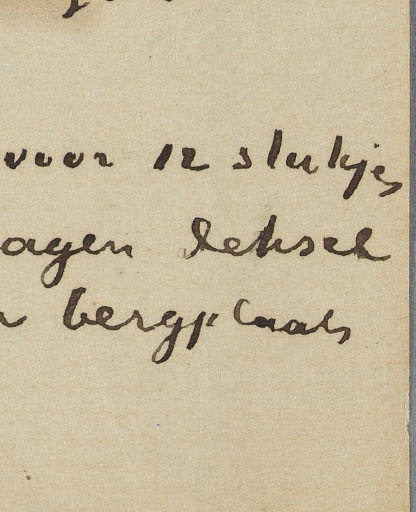 voor 12 stukjes
agen deksel
bergplaats